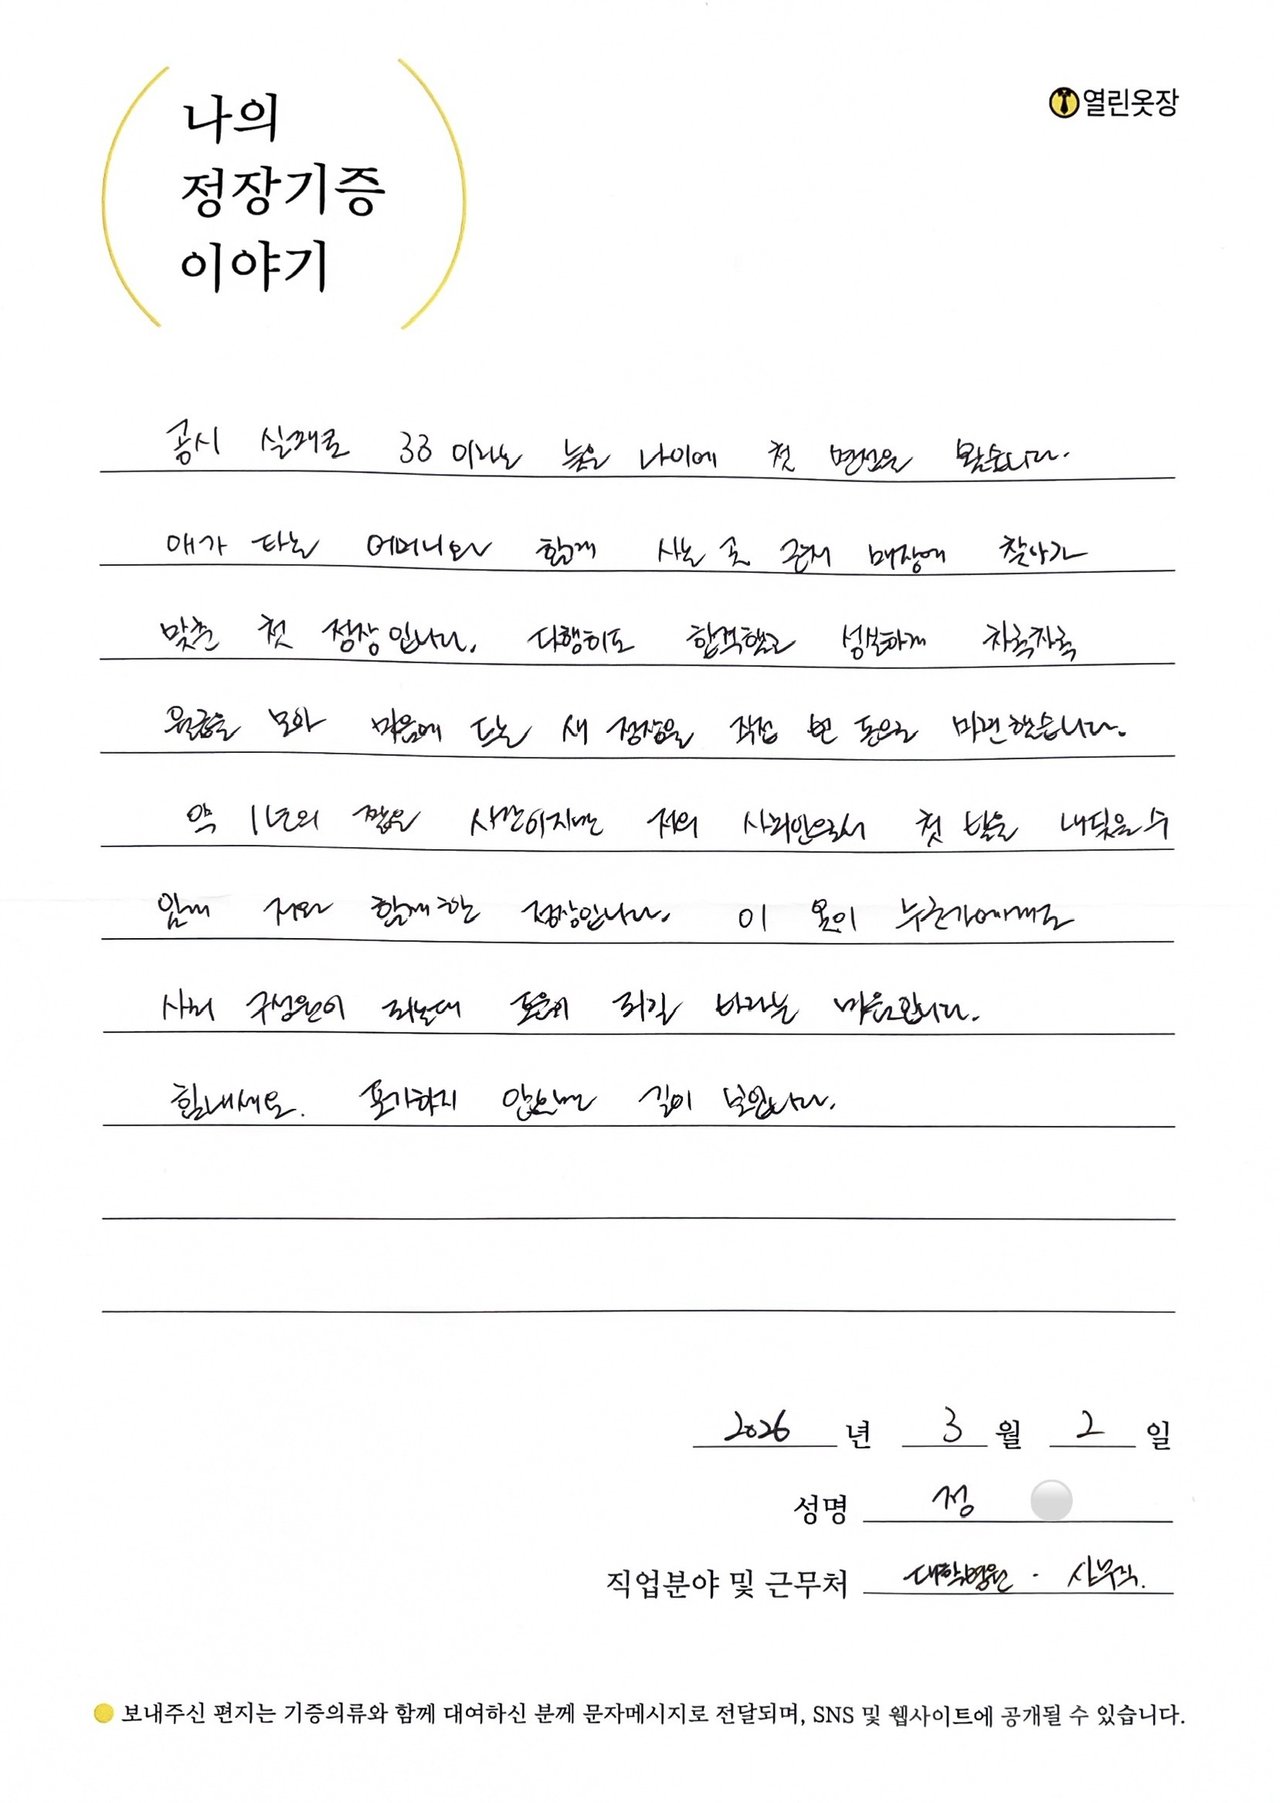 나의
정장기증
이야기
열린옷장
공시 실패로 33이라는 늦은 나이에 첫 면접을 봤습니다.
애가 타는 어머니와 함께 사는 곳 근처 매장에 찾아가
맞춘 첫 정장입니다. 다행히도 합격했고 성실하게 차곡차곡
월급을 모아 마음에 드는 새 정장을 직접 번 돈으로 마련했습니다.
약 1년의 짧은 시간이지만 저의 사회인으로서 첫 발을 내딛을 수
있게 저와 함께한 정장입니다. 이 옷이 누군가에게도
사회 구성원이 되는데 도움이 되길 바라는 마음입니다.
힘내세요. 포기하지 않으면 길이 보입니다.
2026 년 3 월 2 일
성명 정
직업분야 및 근무처 대학병원 · 사무직.
보내주신 편지는 기증의류와 함께 대여하신 분께 문자메시지로 전달되며, SNS 및 웹사이트에 공개될 수 있습니다.